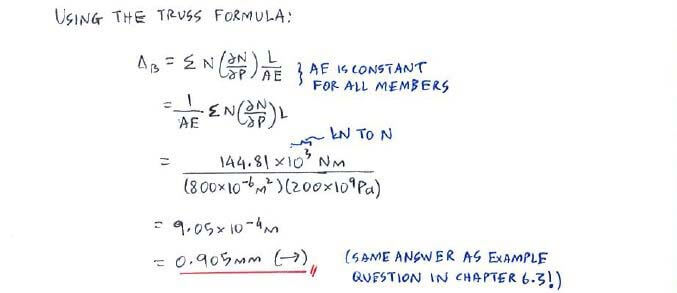 USING THE TRUSS FORMULA:
Δ_B = Σ N(∂N/∂P) L/AE } AE IS CONSTANT
FOR ALL MEMBERS
= 1/AE Σ N(∂N/∂P) L
kN TO N
= 144.81 × 10³ Nm / (800×10⁻⁶ m²)(200×10⁹ Pa)
= 9.05 × 10⁻⁴ m
= 0.905mm (→) (SAME ANSWER AS EXAMPLE
QUESTION IN CHAPTER 6.3!)